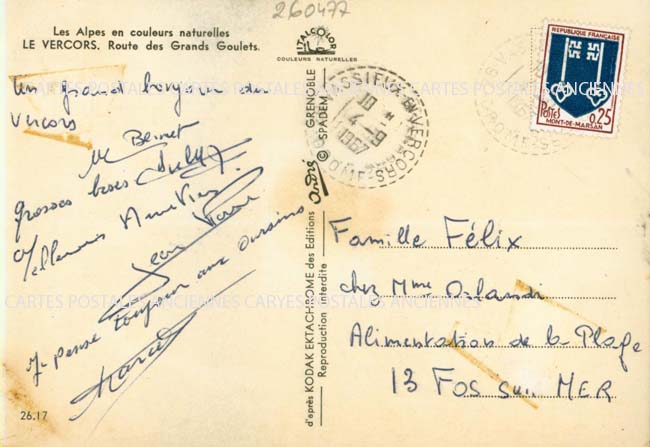 260477
Les Alpes en couleurs naturelles
LE VERCORS. Route des Grands Goulets.
ITALCOLOR
COULEURS NATURELLES
REPUBLIQUE FRANÇAISE
Postes 0.25
MONT-DE-MARSAN
VASSIEUX-EN-VERCORS
10 *
4-9
1967
DROME
Un grand bonjour du
Vercors
M Benet
grosses bises
Anne
Jean Pierre
Je pense toujours aux oursins
Marcel
26.17
d'après KODAK EKTACHROME des Editions André © GRENOBLE SPADEM
Reproduction interdite
Famille Félix
chez Mme Orlandi
Alimentation de la Plage
13 FOS sur MER
CARTES POSTALES ANCIENNES